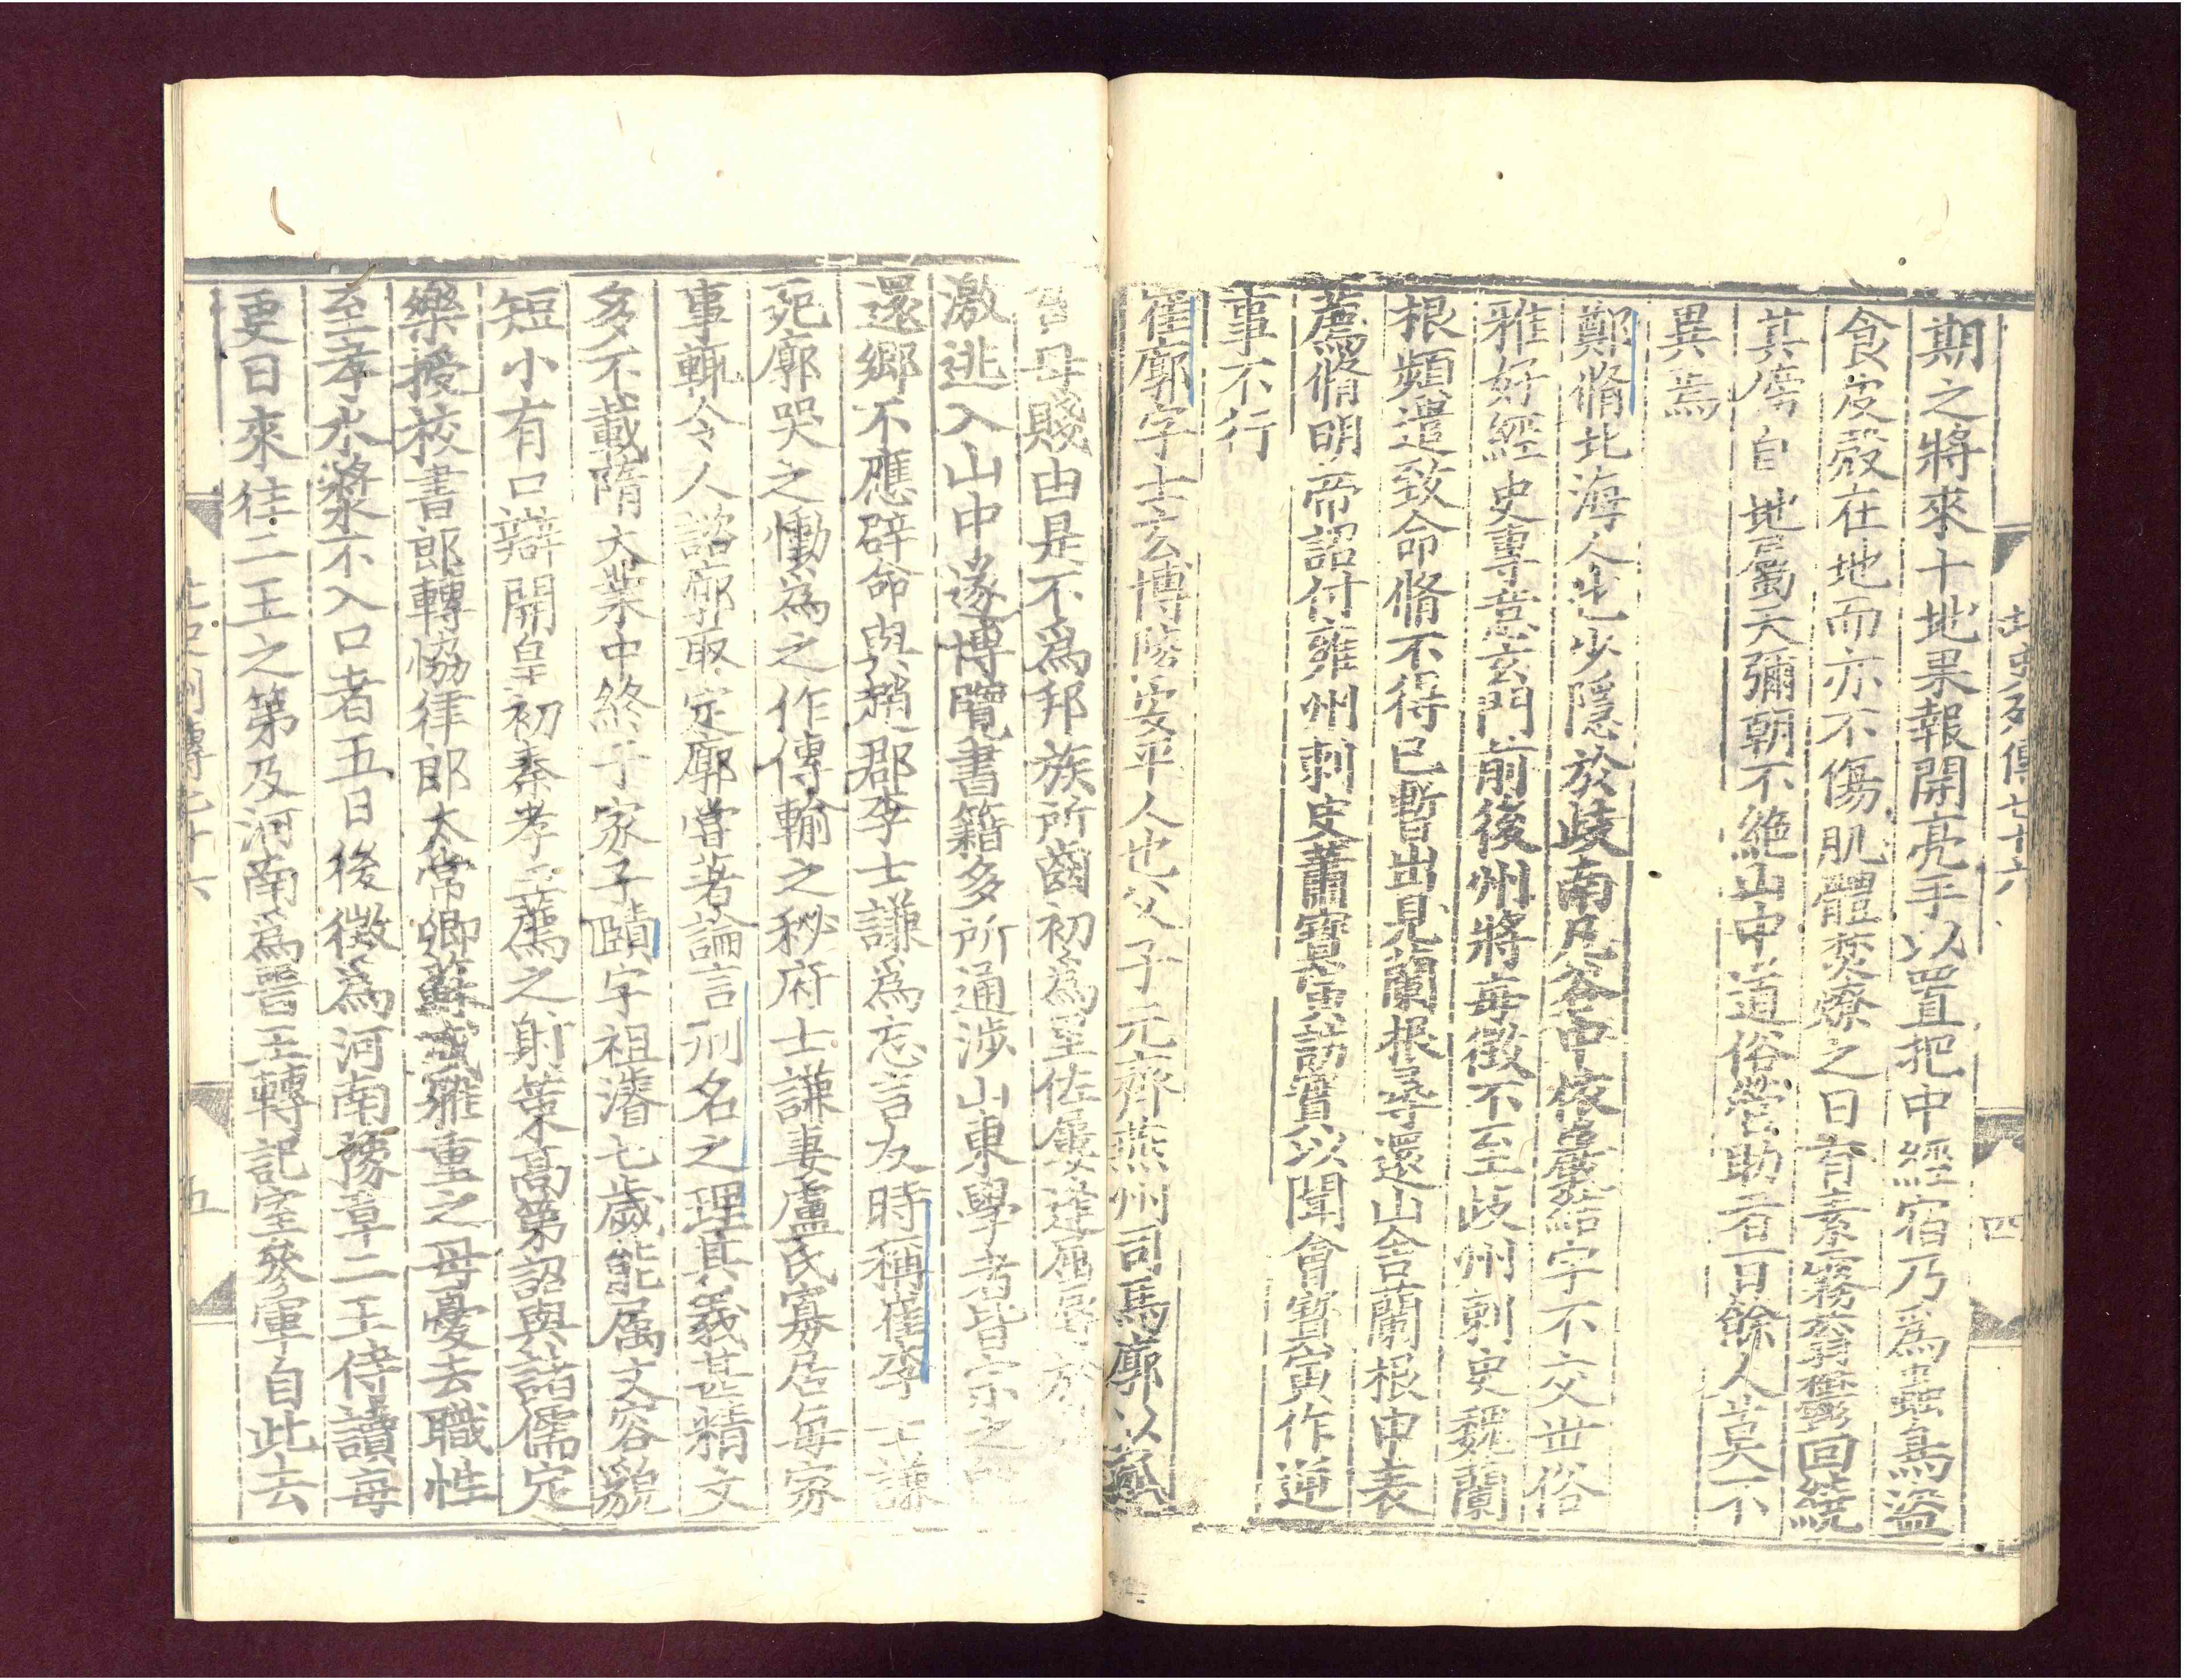 北史列傳七十六
四
期之將來十地果報開亮手以置把中經宿乃爲蟲鳥盜
食皮殼在地而亦不傷肌體焚燎之日有素霧蓊鬱回繞
其傍自地屬天彌朝不絶山中道俗營助者百餘人莫不
異焉
鄭脩北海人也少隱於歧南凡谷中依巖結宇不交世俗
雅好經史專意玄門前後州將每徵不至歧州刺史魏蘭
根頻遣致命脩不得已暫出見蘭根尋還山舍蘭根申表
薦脩明帝詔付雍州刺史蕭寶夤訪實以聞會寶夤作逆
事不行
崔廓字士玄博陵安平人也父子元齊燕州司馬廓少孤
母賤由是不爲邦族所齒初爲里佐屢逢屈辱於
激逃入山中遂博覽書籍多所通涉山東學者皆宗之
還鄉不應辟命與趙郡李士謙爲忘言友時稱崔李士謙
死廓哭之慟爲之作傳輸之秘府士謙妻盧氏寡居每家
事輒令人諮廓取定廓嘗著論言刑名之理其義甚精文
多不載隋大業中終于家子賾字祖濬七歲能属文容貌
短小有口辯開皇初秦孝王薦之射策高第詔與諸儒定
樂授校書郎轉恊律郎太常卿蘇威雅重之母憂去職性
至孝水漿不入口者五日後徵爲河南豫章二王侍讀每
更日來往二王之第及河南爲晉王轉記室參軍自此去
北史列傳七十六
五